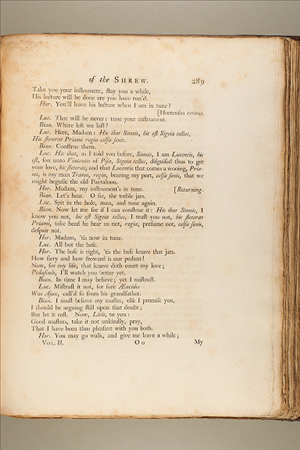 of the SHREW. 289
Take you your inſtrument, ſtay you a while,
His lecture will be done ere you have tun'd.
Hor. You'll leave his lecture when I am in tune?
[Hortenſio retires.
Luc. That will be never: tune your inſtrument.
Bian. Where left we laſt?
Luc. Here, Madam: Hic ibat Simois, hic eſt Sigeia tellus,
Hic ſteterat Priami regia celſa ſenis.
Bian. Conſtrue them.
Luc. Hic ibat, as I told you before, Simois, I am Lucentio, hic
eſt, ſon unto Vincentio of Piſa, Sigeia tellus, diſguiſed thus to get
your love, hic ſteterat, and that Lucentio that comes a wooing, Pria-
mi, is my man Tranio, regia, bearing my port, celſa ſenis, that we
might beguile the old Pantaloon.
Hor. Madam, my inſtrument's in tune. [Returning.
Bian. Let's hear. O fie, the treble jars.
Luc. Spit in the hole, man, and tune again.
Bian. Now let me ſee if I can conſtrue it: Hic ibat Simois, I
know you not, hic eſt Sigeia tellus, I truſt you not, hic ſteterat
Priami, take heed he hear us not, regia, preſume not, celſa ſenis,
deſpair not.
Hor. Madam, 'tis now in tune.
Luc. All but the baſe.
Hor. The baſe is right, 'tis the baſe knave that jars.
How fiery and how froward is our pedant!
Now, for my life, that knave doth court my love;
Pedaſcule, I'll watch you better yet.
Bian. In time I may believe; yet I miſtruſt.
Luc. Miſtruſt it not, for ſure Æacides
Was Ajax, call'd ſo from his grandfather.
Bian. I muſt believe my maſter, elſe I promiſe you,
I ſhould be arguing ſtill upon that doubt;
But let it reſt. Now, Licio, to you:
Good maſters, take it not unkindly, pray,
That I have been thus pleaſant with you both.
Hor. You may go walk, and give me leave a while;
VOL. II. O o My